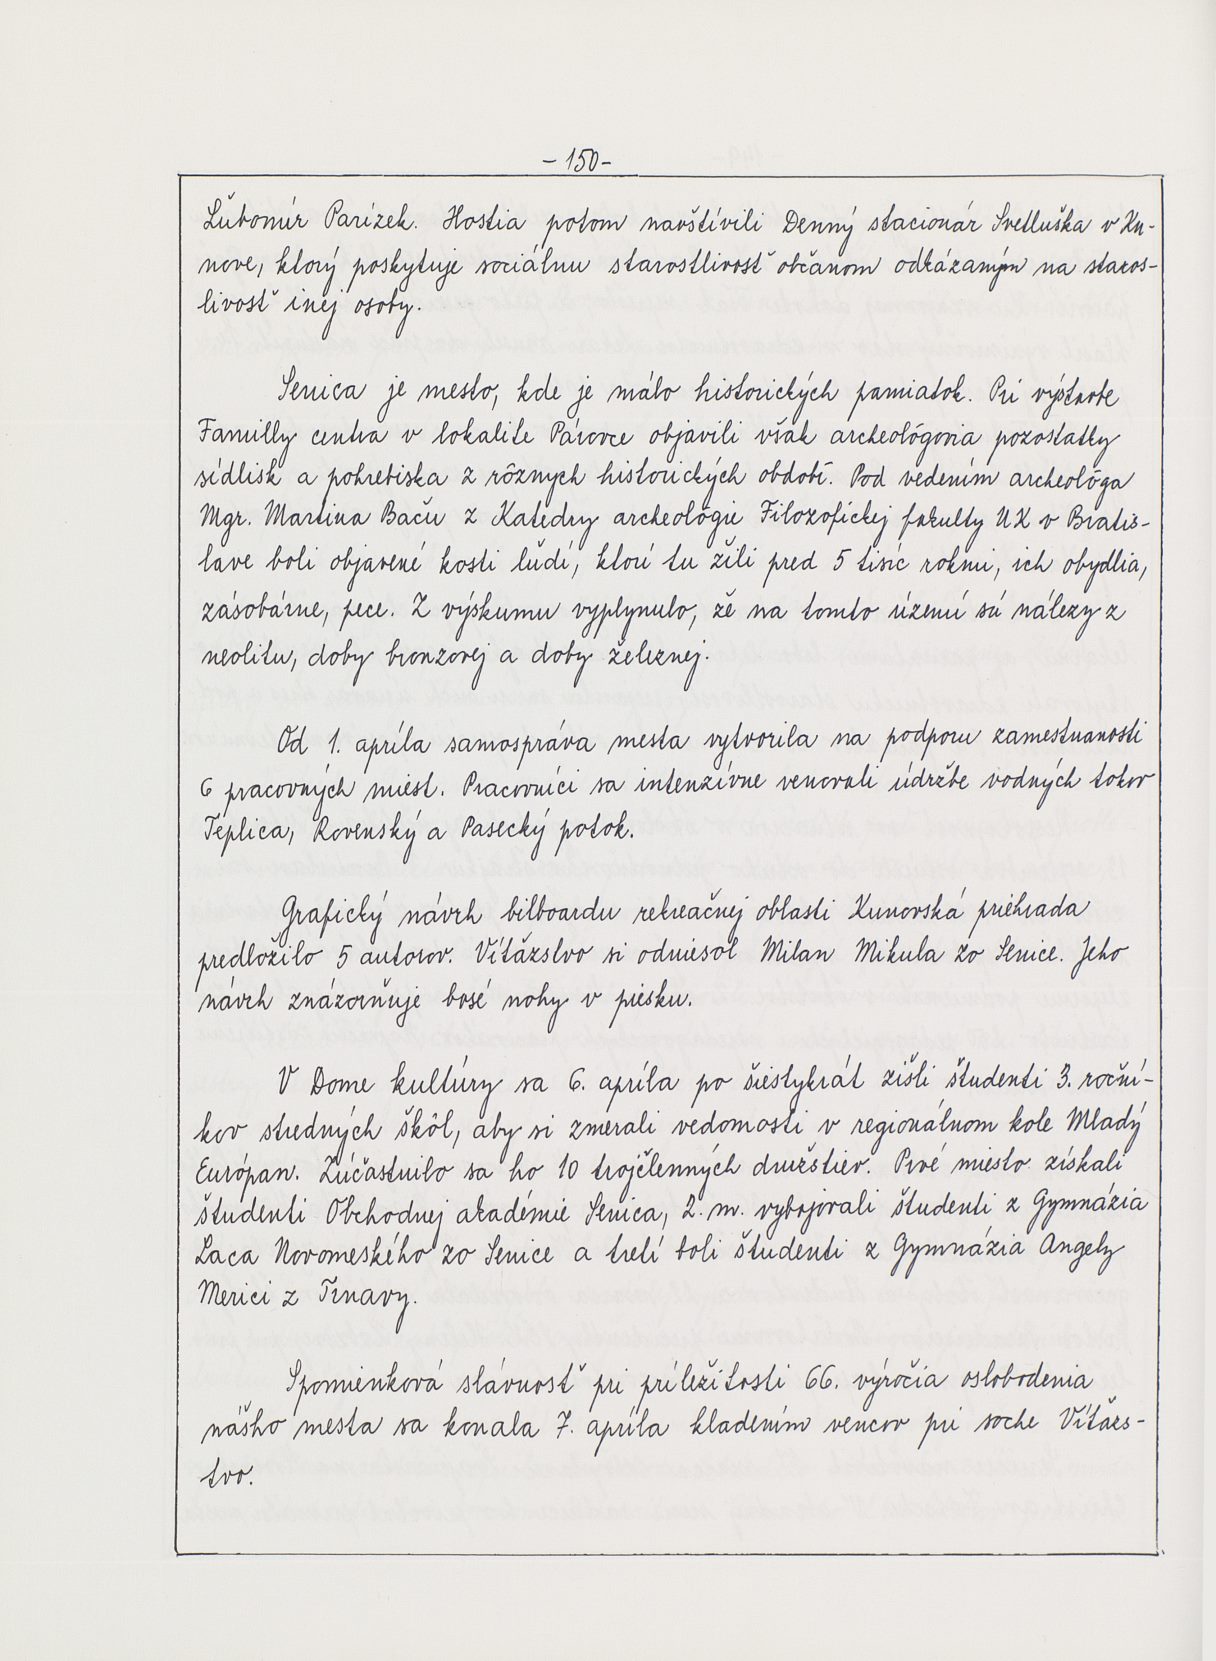 - 150 -
Ľubomír Parízek. Hostia potom navštívili Denný stacionár Svetluška v Ku-
nove, ktorý poskytuje sociálnu starostlivosť občanom odkázaným na staros-
livosť inej osoby.
Senica je mesto, kde je málo historických pamiatok. Pri výstavbe
Familly centra v lokalite Párovce objavili však archeológovia pozostatky
sídlisk a pohrebiska z rôznych historických období. Pod vedením archeológa
Mgr. Martina Baču z Katedry archeológie Filozofickej fakulty UK v Bratis-
lave boli objavené kosti ľudí, ktorí tu žili pred 5 tisíc rokmi, ich obydlia,
zásobárne, pece. Z výskumu vyplynulo, že na tomto území sú nálezy z
neolitu, doby bronzovej a doby železnej.
Od 1. apríla samospráva mesta vytvorila na podporu zamestnanosti
6 pracovných miest. Pracovníci sa intenzívne venovali údržbe vodných tokov
Teplica, Rovenský a Pasecký potok.
Grafický návrh bilboardu rekreačnej oblasti Kunovská priehrada
predložilo 5 autorov. Víťazstvo si odniesol Milan Mikula zo Senice. Jeho
návrh znázorňuje bosé nohy v piesku.
V Dome kultúry sa 6. apríla po šiestykrát zišli študenti 3. roční-
kov stredných škôl, aby si zmerali vedomosti v regionálnom kole Mladý
Európan. Zúčastnilo sa ho 10 trojčlenných družstiev. Prvé miesto získali
študenti Obchodnej akadémie Senica, 2. m. vybojovali študenti z Gymnázia
Laca Novomeského zo Senice a tretí boli študenti z Gymnázia Angely
Merici z Trnavy.
Spomienková slávnosť pri príležitosti 66. výročia oslobodenia
nášho mesta sa konala 7. apríla kladením vencov pri soche Víťazs-
tvo.